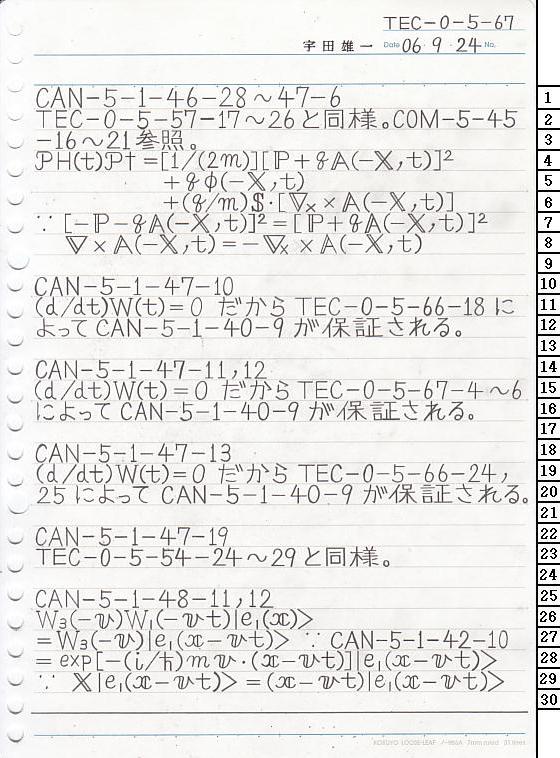 TEC-0-5-67
宇田雄一 Date 06・9・24 No.
CAN-5-1-46-28～47-6
TEC-0-5-57-17～26と同様。COM-5-45
-16～21参照。
𝒫H(t)𝒫† = [1/(2m)][ℙ+q𝔸(-𝕏,t)]²
+qΦ(-𝕏,t)
+(q/m)𝕊・[∇ₓ×𝔸(-𝕏,t)]
∵ [-ℙ-q𝔸(-𝕏,t)]²=[ℙ+q𝔸(-𝕏,t)]²
∇×𝔸(-𝕏,t)=-∇ₓ×𝔸(-𝕏,t)
CAN-5-1-47-10
(d/dt)W(t)=0 だから TEC-0-5-66-18 に
よって CAN-5-1-40-9 が保証される。
CAN-5-1-47-11,12
(d/dt)W(t)=0 だから TEC-0-5-67-4～6
によって CAN-5-1-40-9 が保証される。
CAN-5-1-47-13
(d/dt)W(t)=0 だから TEC-0-5-66-24,
25 によって CAN-5-1-40-9 が保証される。
CAN-5-1-47-19
TEC-0-5-54-24～29と同様。
CAN-5-1-48-11,12
W₃(-𝕧)W₁(-𝕧t)|e₁(𝕩)>
=W₃(-𝕧)|e₁(𝕩-𝕧t)> ∵ CAN-5-1-42-10
=exp[-(i/ħ)m𝕧・(𝕩-𝕧t)]|e₁(𝕩-𝕧t)>
∵ 𝕏|e₁(𝕩-𝕧t)>=(𝕩-𝕧t)|e₁(𝕩-𝕧t)>
KOKUYO LOOSE-LEAF 7mm ruled 31 lines
1
2
3
4
5
6
7
8
9
10
11
12
13
14
15
16
17
18
19
20
21
22
23
24
25
26
27
28
29
30